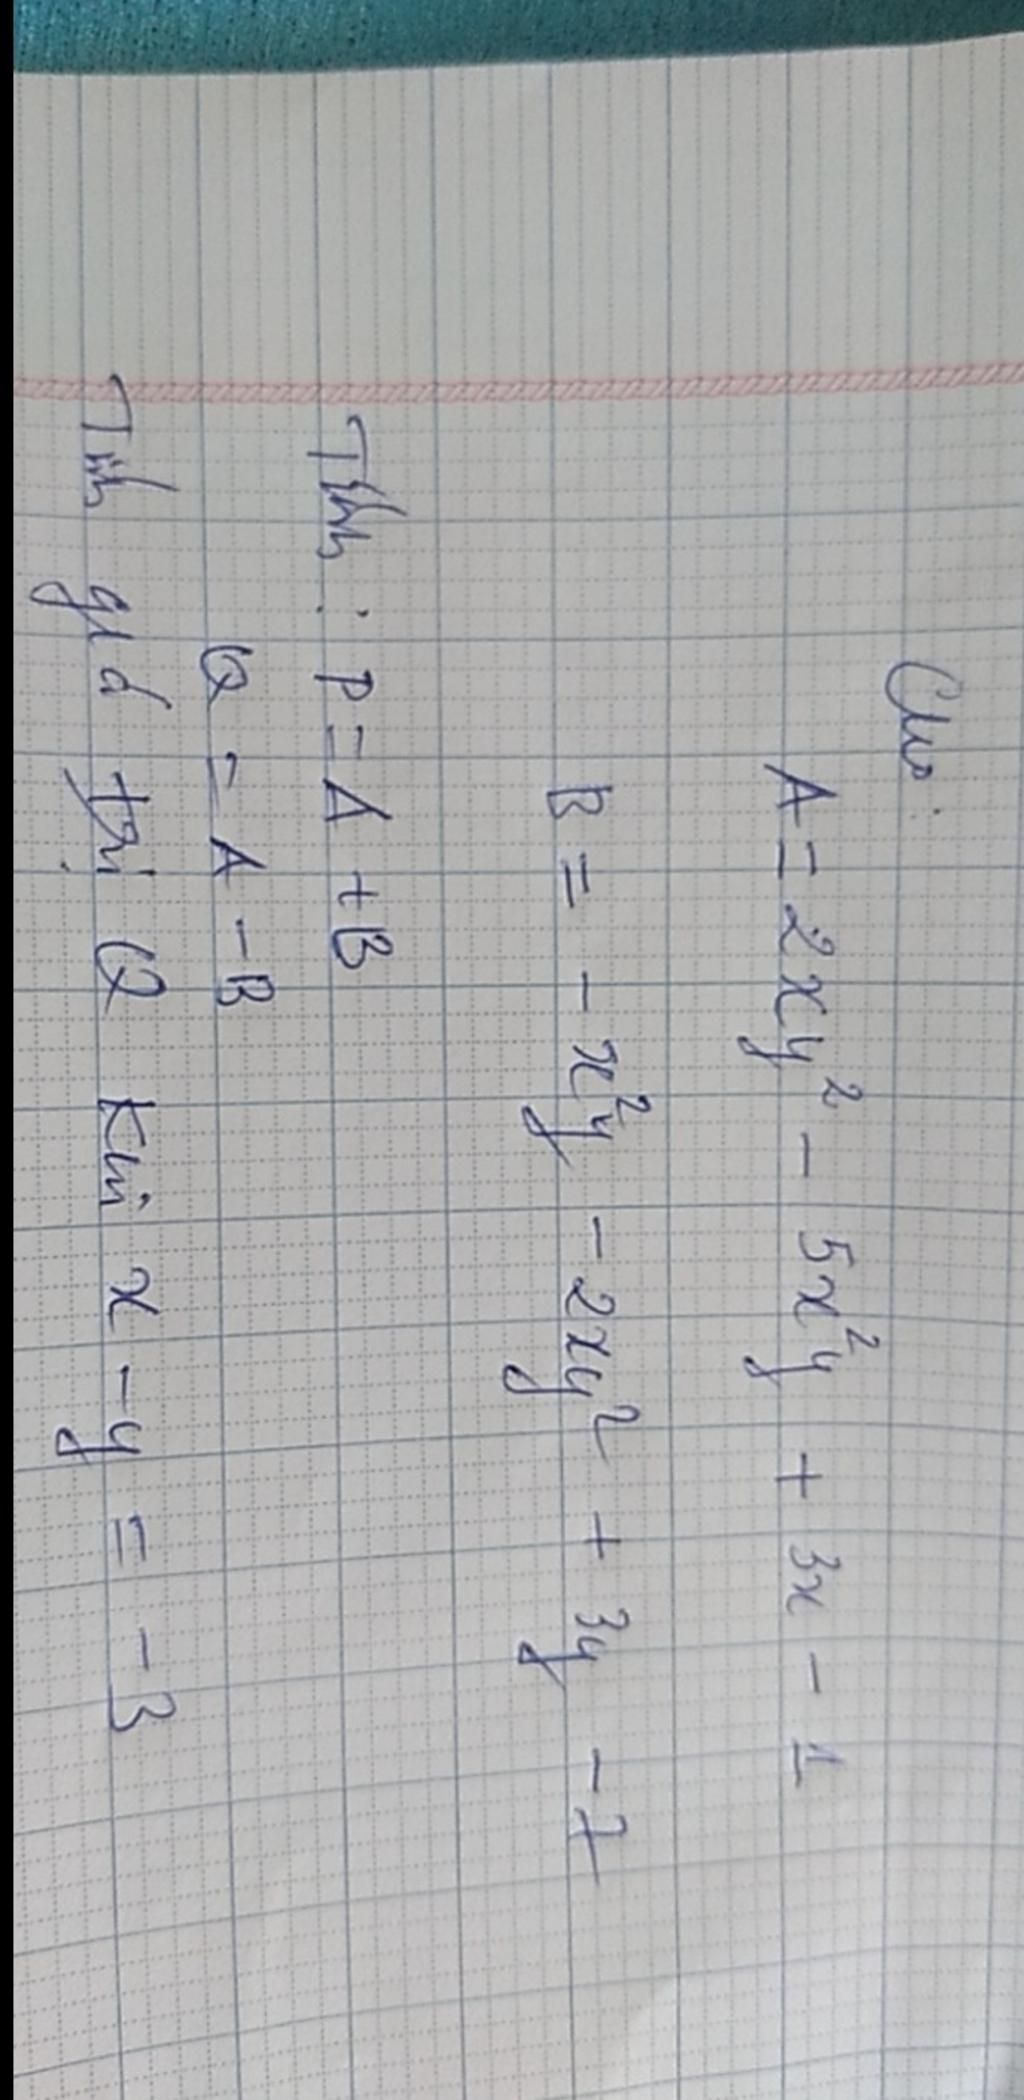 Cho:
A = 2xy² - 5x²y + 3x - 1
B = - x²y - 2xy² + 3y - 7
Tính : P = A + B
Q = A - B
Tính giá trị Q khi x - y = - 3